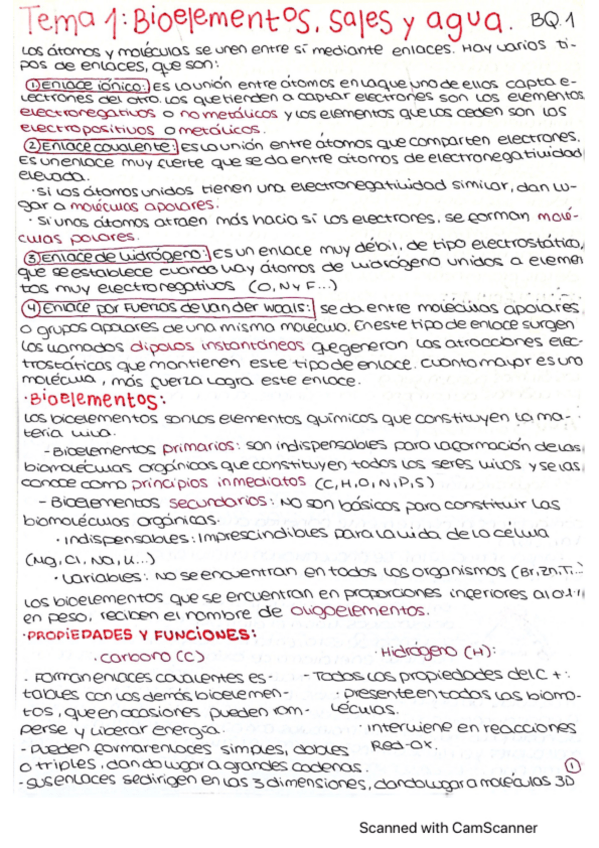 Tema 1: Bioelementos, sales y agua. BQ.1
Los átomos y moléculas se unen entre sí mediante enlaces. Hay varios ti-
pos de enlaces, que son:
① Enlace iónico: Es la unión entre átomos en la que uno de ellos capta e-
lectrones del otro. Los que tienden a captar electrones son los elementos
electronegativos o no metálicos y los elementos que los ceden son los
electropositivos o metálicos.
② Enlace covalente: Es la unión entre átomos que comparten electrones.
Es un enlace muy fuerte que se da entre átomos de electronegatividad
elevada.
· Si los átomos unidos tienen una electronegatividad similar, dan lu-
gar a moléculas apolares.
· Si unos átomos atraen más hacia sí los electrones, se forman molé-
culas polares.
③ Enlace de hidrógeno: Es un enlace muy débil, de tipo electrostático,
que se establece cuando hay átomos de hidrógeno unidos a elemen
tos muy electronegativos (O, N y F...)
④ Enlace por fuerzas de van der waals: se da entre moléculas apolares
o grupos apolares de una misma molécula. En este tipo de enlace surgen
los llamados dipolos instantáneos que generan las atracciones elec-
trostáticas que mantienen este tipo de enlace. Cuanto mayor es una
molécula, más fuerza logra este enlace.
· Bioelementos:
Los bioelementos son los elementos químicos que constituyen la ma-
teria viva.
- Bioelementos primarios: son indispensables para la formación de las
biomoléculas orgánicas que constituyen todos los seres vivos y se las
conoce como principios inmediatos (C, H, O, N, P, S)
- Bioelementos secundarios: No son básicos para constituir las
biomoléculas orgánicas.
· Indispensables: Imprescindibles para la vida de la célula
(Mg, Cl, Na, K...)
· Variables: No se encuentran en todos los organismos (Br, Zn, Ti...
Los bioelementos que se encuentran en proporciones inferiores al 0.1%
en peso, reciben el nombre de oligoelementos.
· PROPIEDADES Y FUNCIONES:
· Carbono (C)
· Forman enlaces covalentes es-
tables con los demás bioelemen-
tos, que en ocasiones pueden rom-
perse y liberar energía.
- Pueden formar enlaces simples, dobles
o triples, dando lugar a grandes cadenas.
- Sus enlaces se dirigen en las 3 dimensiones, dando lugar a moléculas 3D
· Hidrógeno (H):
- Todas las propiedades del C +:
· Presente en todas las biomo-
léculas.
· Interviene en reacciones
Red-Ox.
①
Scanned with CamScanner